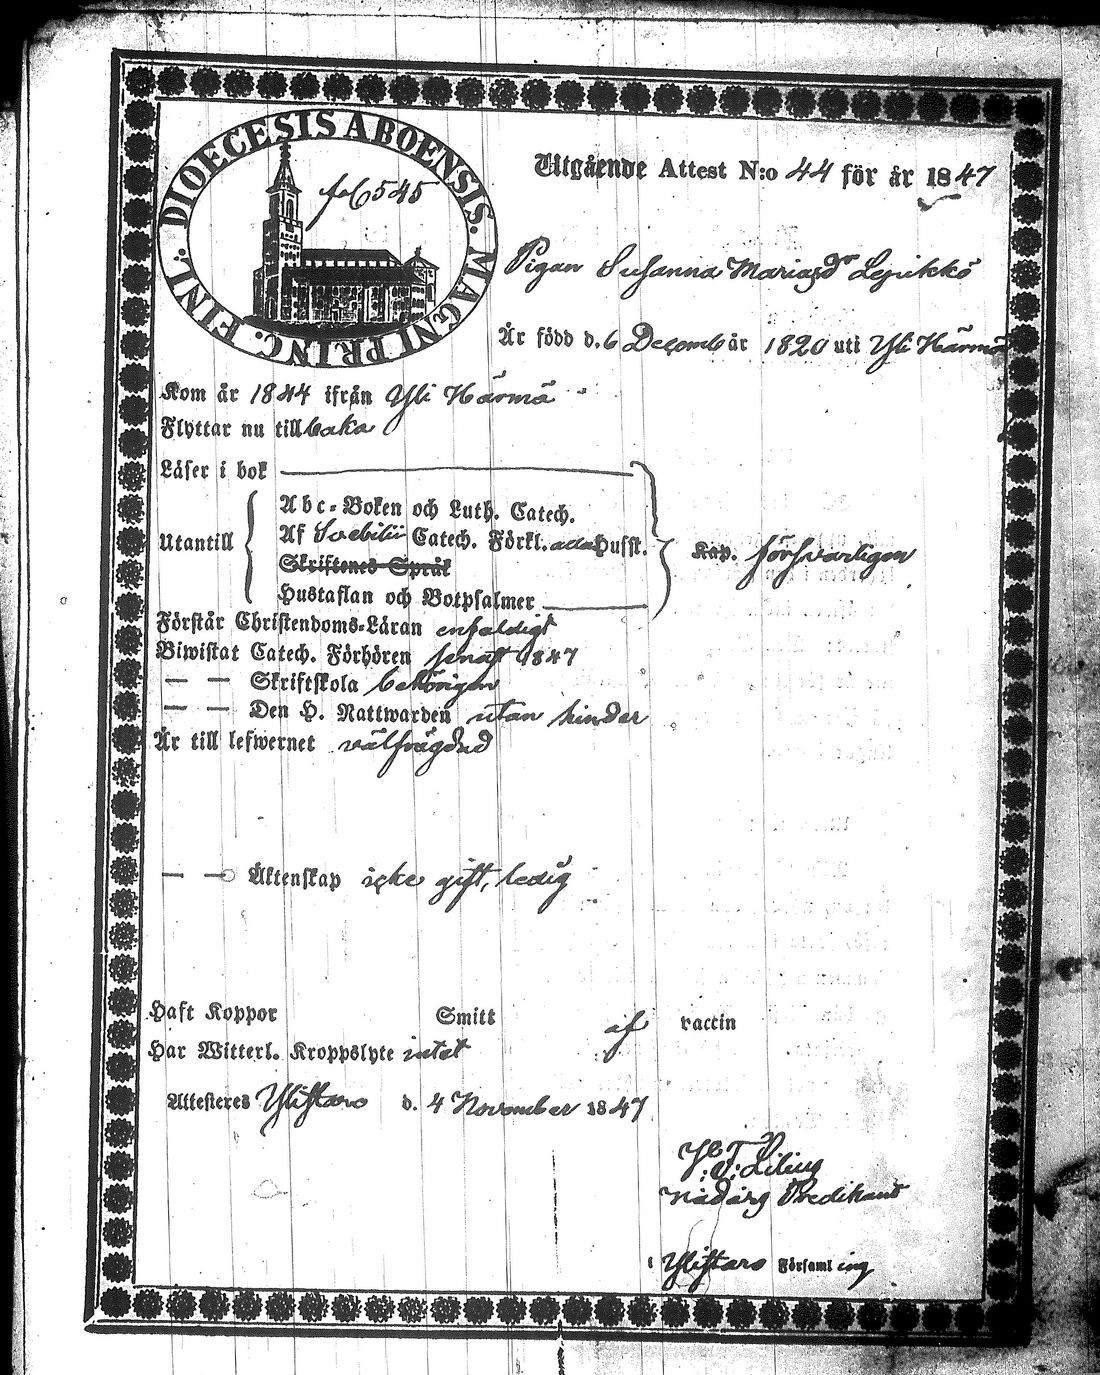 DIOECESIS ABOENSIS. MAGNI PRINC. FINL.
fol 545
Utgående Attest N:o 44 för år 1847
Pigan Susanna Mariasdr Lejukkö
Är född d. 6 Decemb år 1820 uti Yli Härmä
Kom år 1844 ifrån Yli Härmä
Flyttar nu tillbaka
Läser i bok
Utantill
Abc-Boken och Luth. Catech.
Af Svebilii Catech. Förkl. utan Husst.
Skriftenes Språk
Hustaflan och Botpsalmer
Kap. försvarligen
Förstår Christendoms-Läran enfaldigt
Biwistat Catech. Förhören senast 1847
— — Skriftskola behörigen
— — Den H. Nattwarden utan hinder
Är till lefwernet välfrägdad
— — Äktenskap icke gift, ledig
Haft Koppor Smitt af vaccin
Har Witterl. Kroppslyte intet
Attesteres Ylistaro d. 4 November 1847
Nådårs Predikant
i Ylistaro Församling